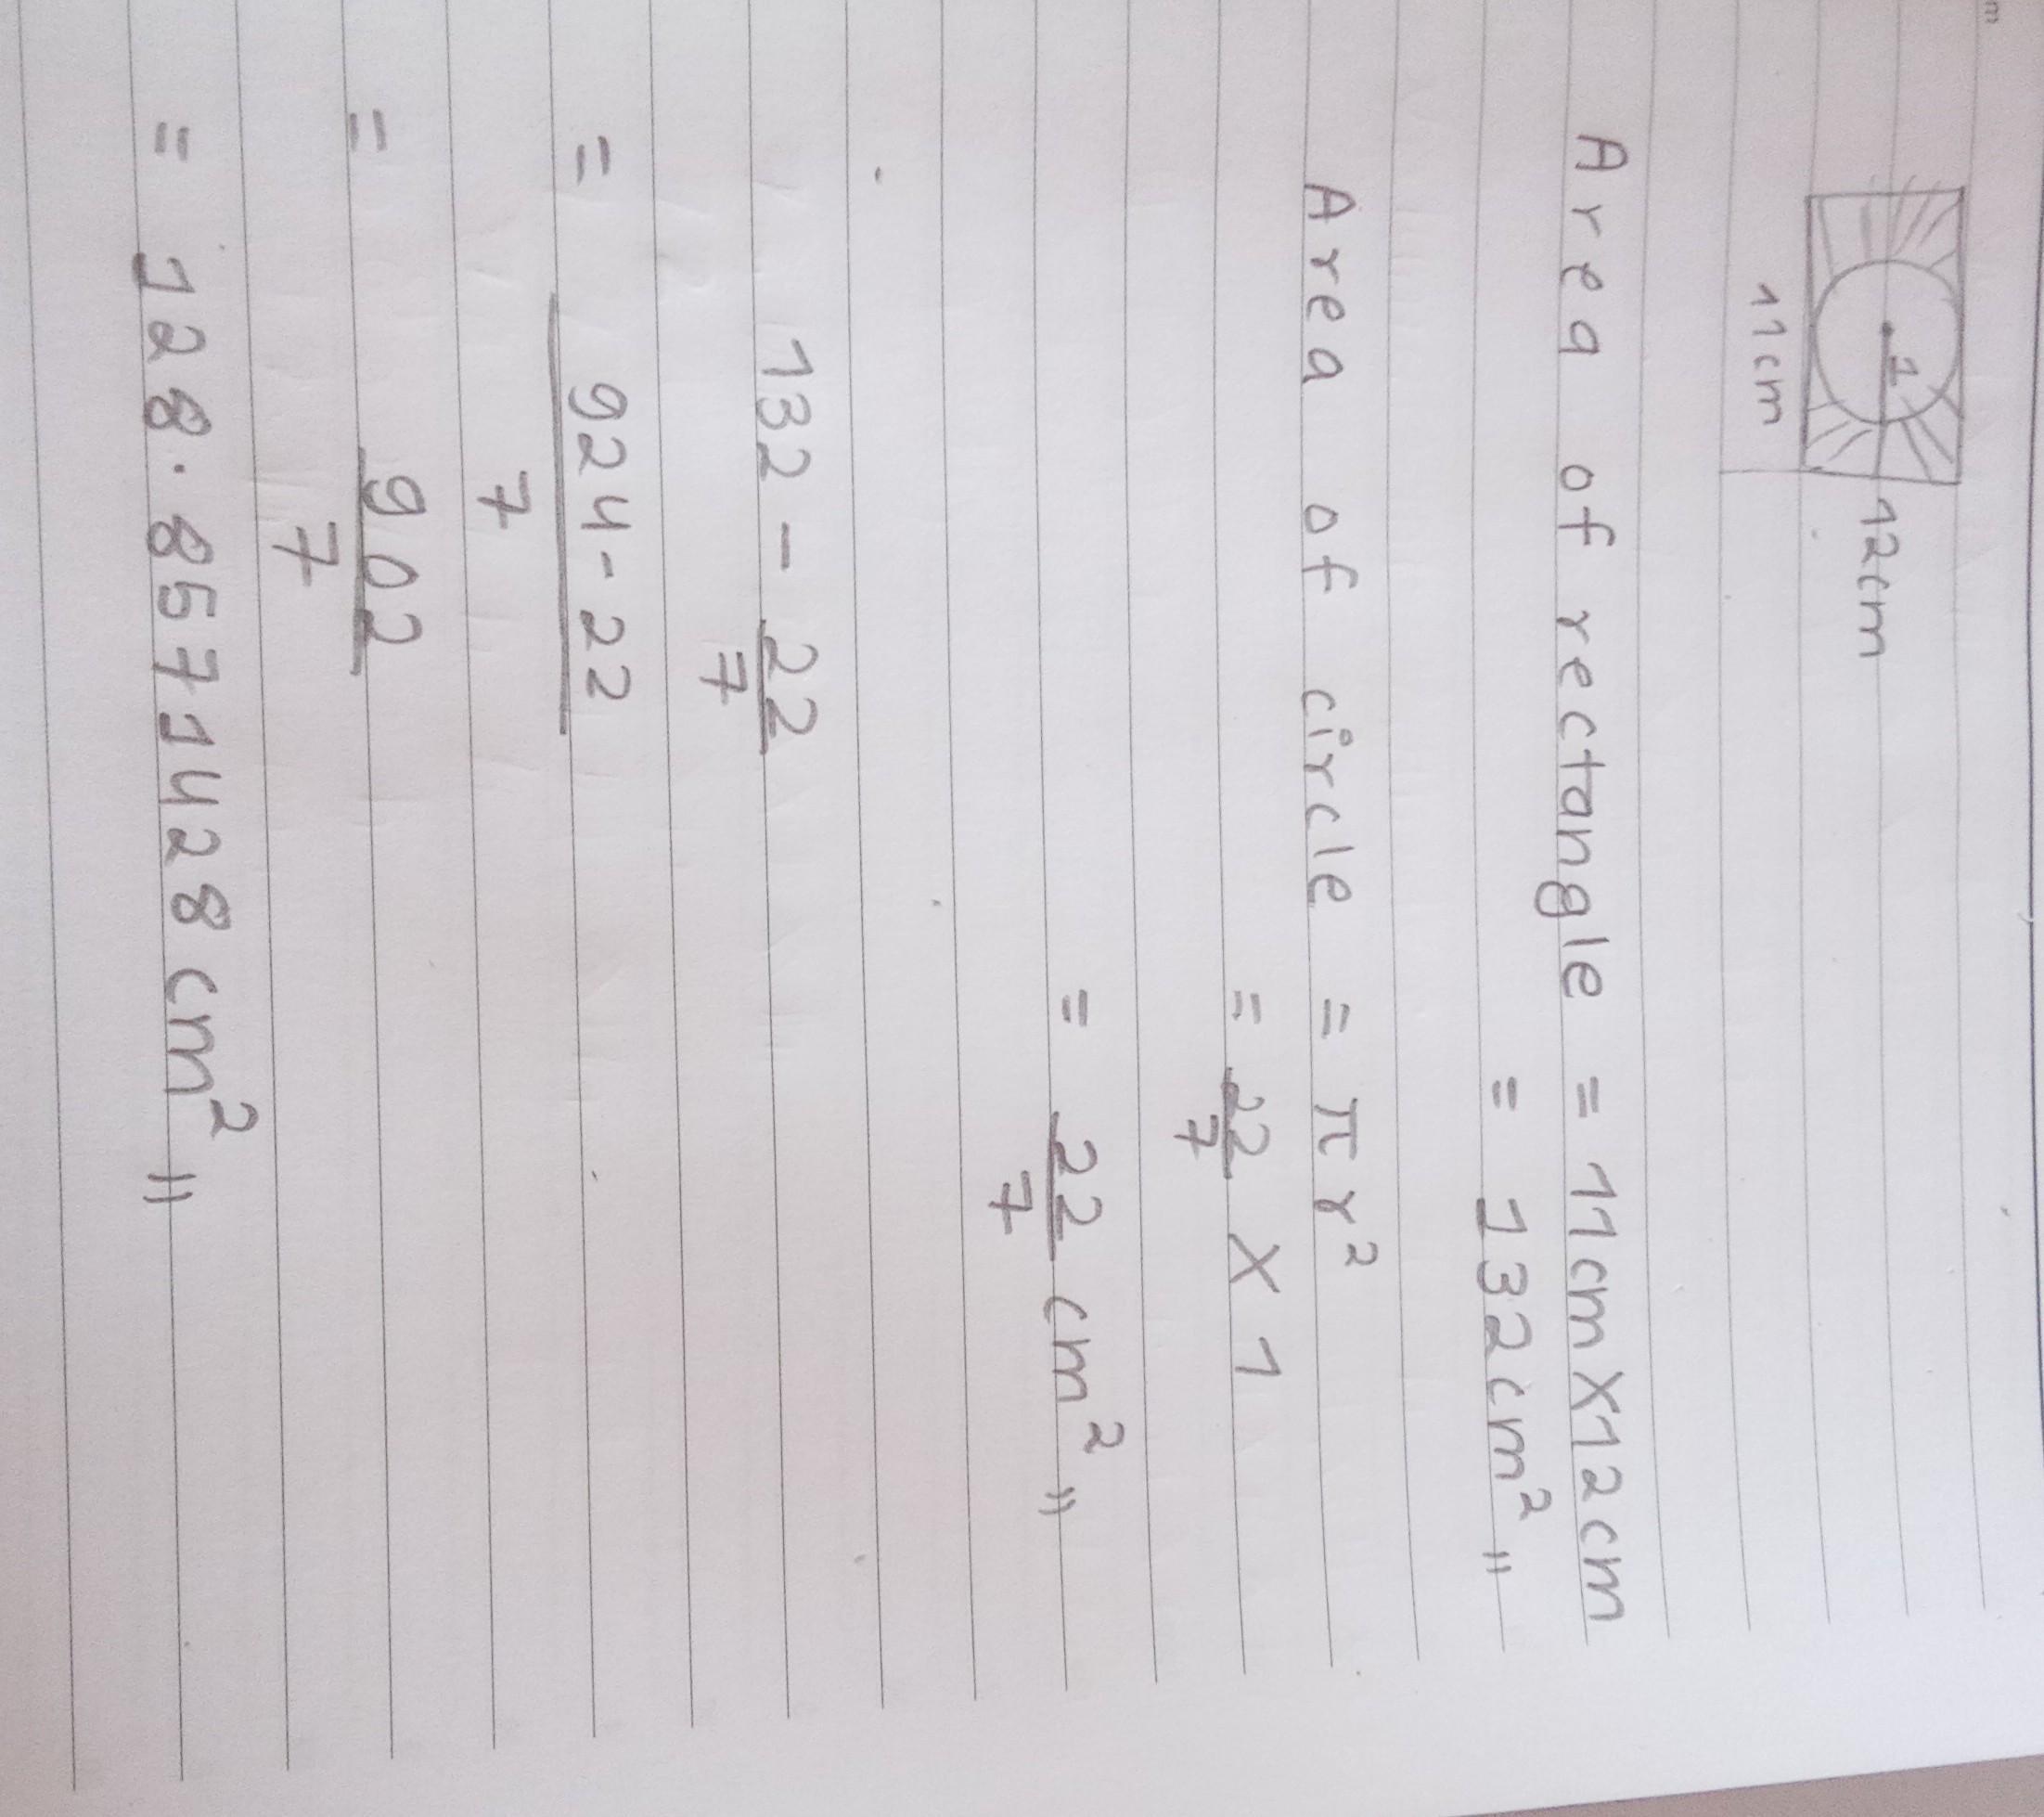 1
12cm
11cm
Area of rectangle = 11cm X12cm
= 132cm² "
Area of circle = πr²
= 22/7 X 1
= 22/7 cm² "
132 - 22/7
= 924-22/7
= 902/7
= 128.8571428cm² "